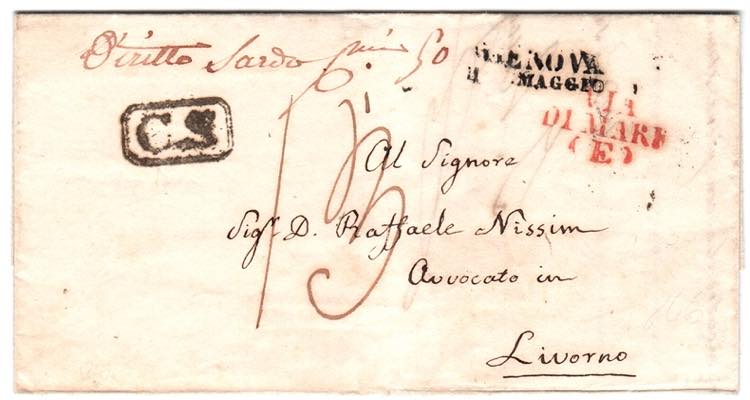 Diritto Sardo 50
GENOVA
MAGGIO
VIA
DI MARE
(E)
C.S
13
Al Signore
Sigr. D. Raffaele Nissim
Avvocato in
Livorno